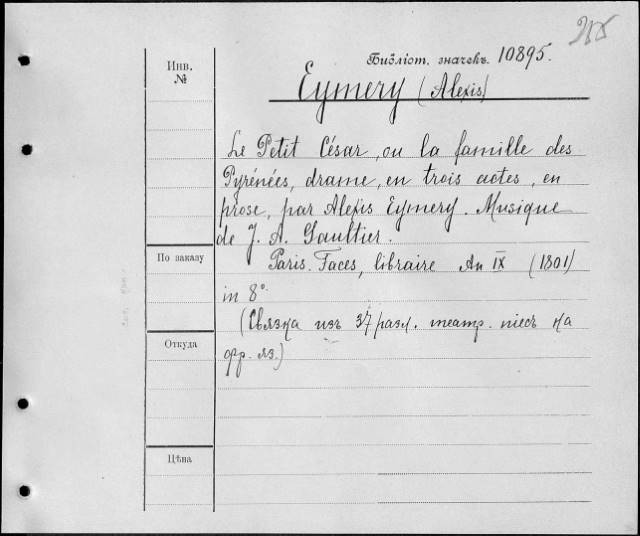 Инв.
№
Библіот. значекъ. 10895.
Eymery (Alexis)
Le Petit César, ou la famille des
Pyrénées, drame, en trois actes, en
prose, par Alexis Eymery. Musique
de J. A. Gaultier.
Paris. Fages, libraire An IX (1801)
in 8°.
(Связка изъ 37 разл. театр. піесъ на
фр. яз.)
По заказу
Откуда
Цѣна